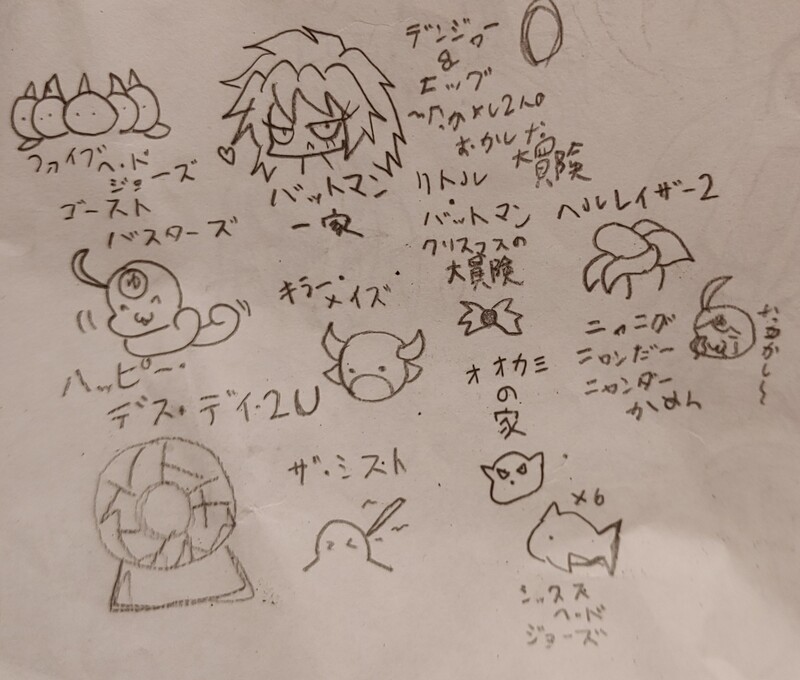 ファイブヘッド
ジョーズ
ゴースト
バスターズ
バットマン
一家
デンジャー
&
エッグ
〜
2人の
おかしな
大冒険
リトル
・
バットマン
クリスマスの
大冒険
ヘルレイザー2
キラー・
メイズ
ハッピー・
デス・デイ・2U
オオカミ
の
家
ニャニが
ニャンだー
ニャンダー
かめん
なつかし〜
ザ・ミスト
×6
シックス
ヘッド
ジョーズ